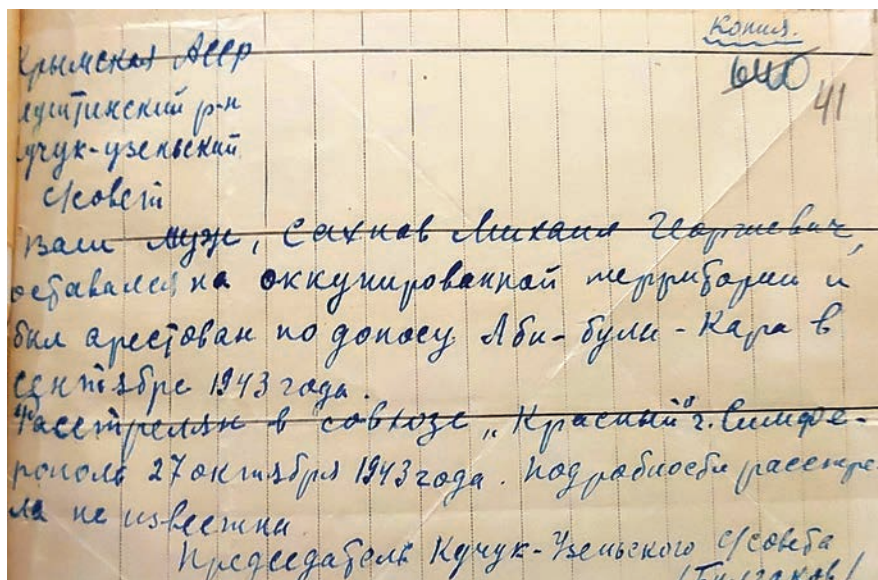 Копия.
640
41
Крымская АССР
Алуштинский р-н
Кучук-узеньский
с/совет
Ваш муж, Сахнов Михаил Георгиевич,
оставался на оккупированной территории и
был арестован по доносу Аби-були-Кара в
сентябре 1943 года.
Расстрелян в совхозе „Красный" г. Симфе-
рополь 27 октября 1943 года. Подробности расстре-
ла не известны
Председатель Кучук-Узеньского с/совета